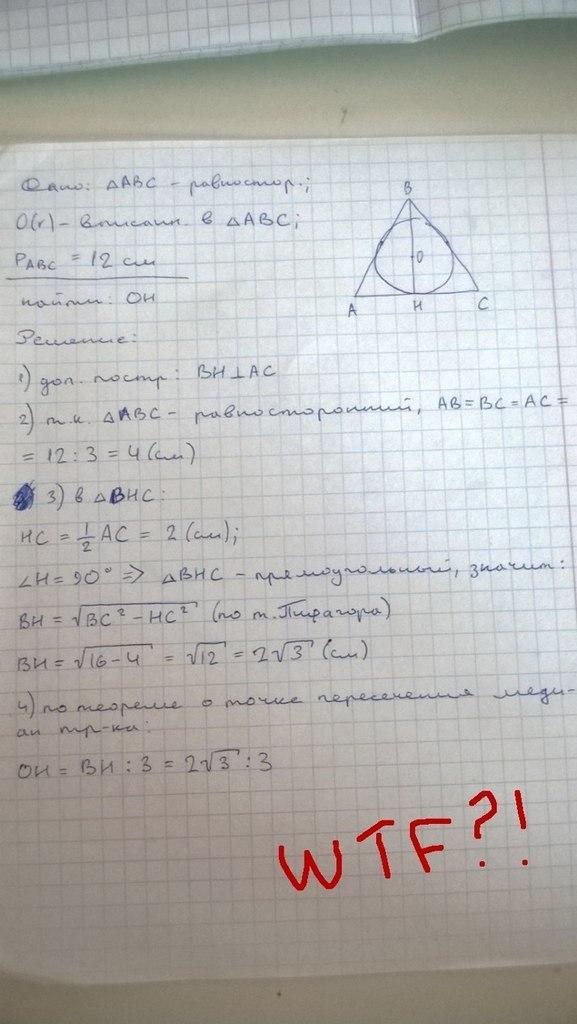 Дано: △ABC - равностор.;
O(r) - вписан. в △ABC;
P_ABC = 12 см
найти: OH
B
O
A
H
C
Решение:
1) доп. постр: BH⊥AC
2) т.к. △ABC - равносторонний, AB=BC=AC=
= 12 : 3 = 4 (см)
3) в △BHC:
HC = 1/2 AC = 2 (см);
∠H = 90° ⇒ △BHC - прямоугольный, значит:
BH = √(BC² - HC²) (по т. Пифагора)
BH = √(16-4) = √12 = 2√3 (см)
4) по теореме о точке пересечения меди-
ан тр-ка:
OH = BH : 3 = 2√3 : 3
WTF?!